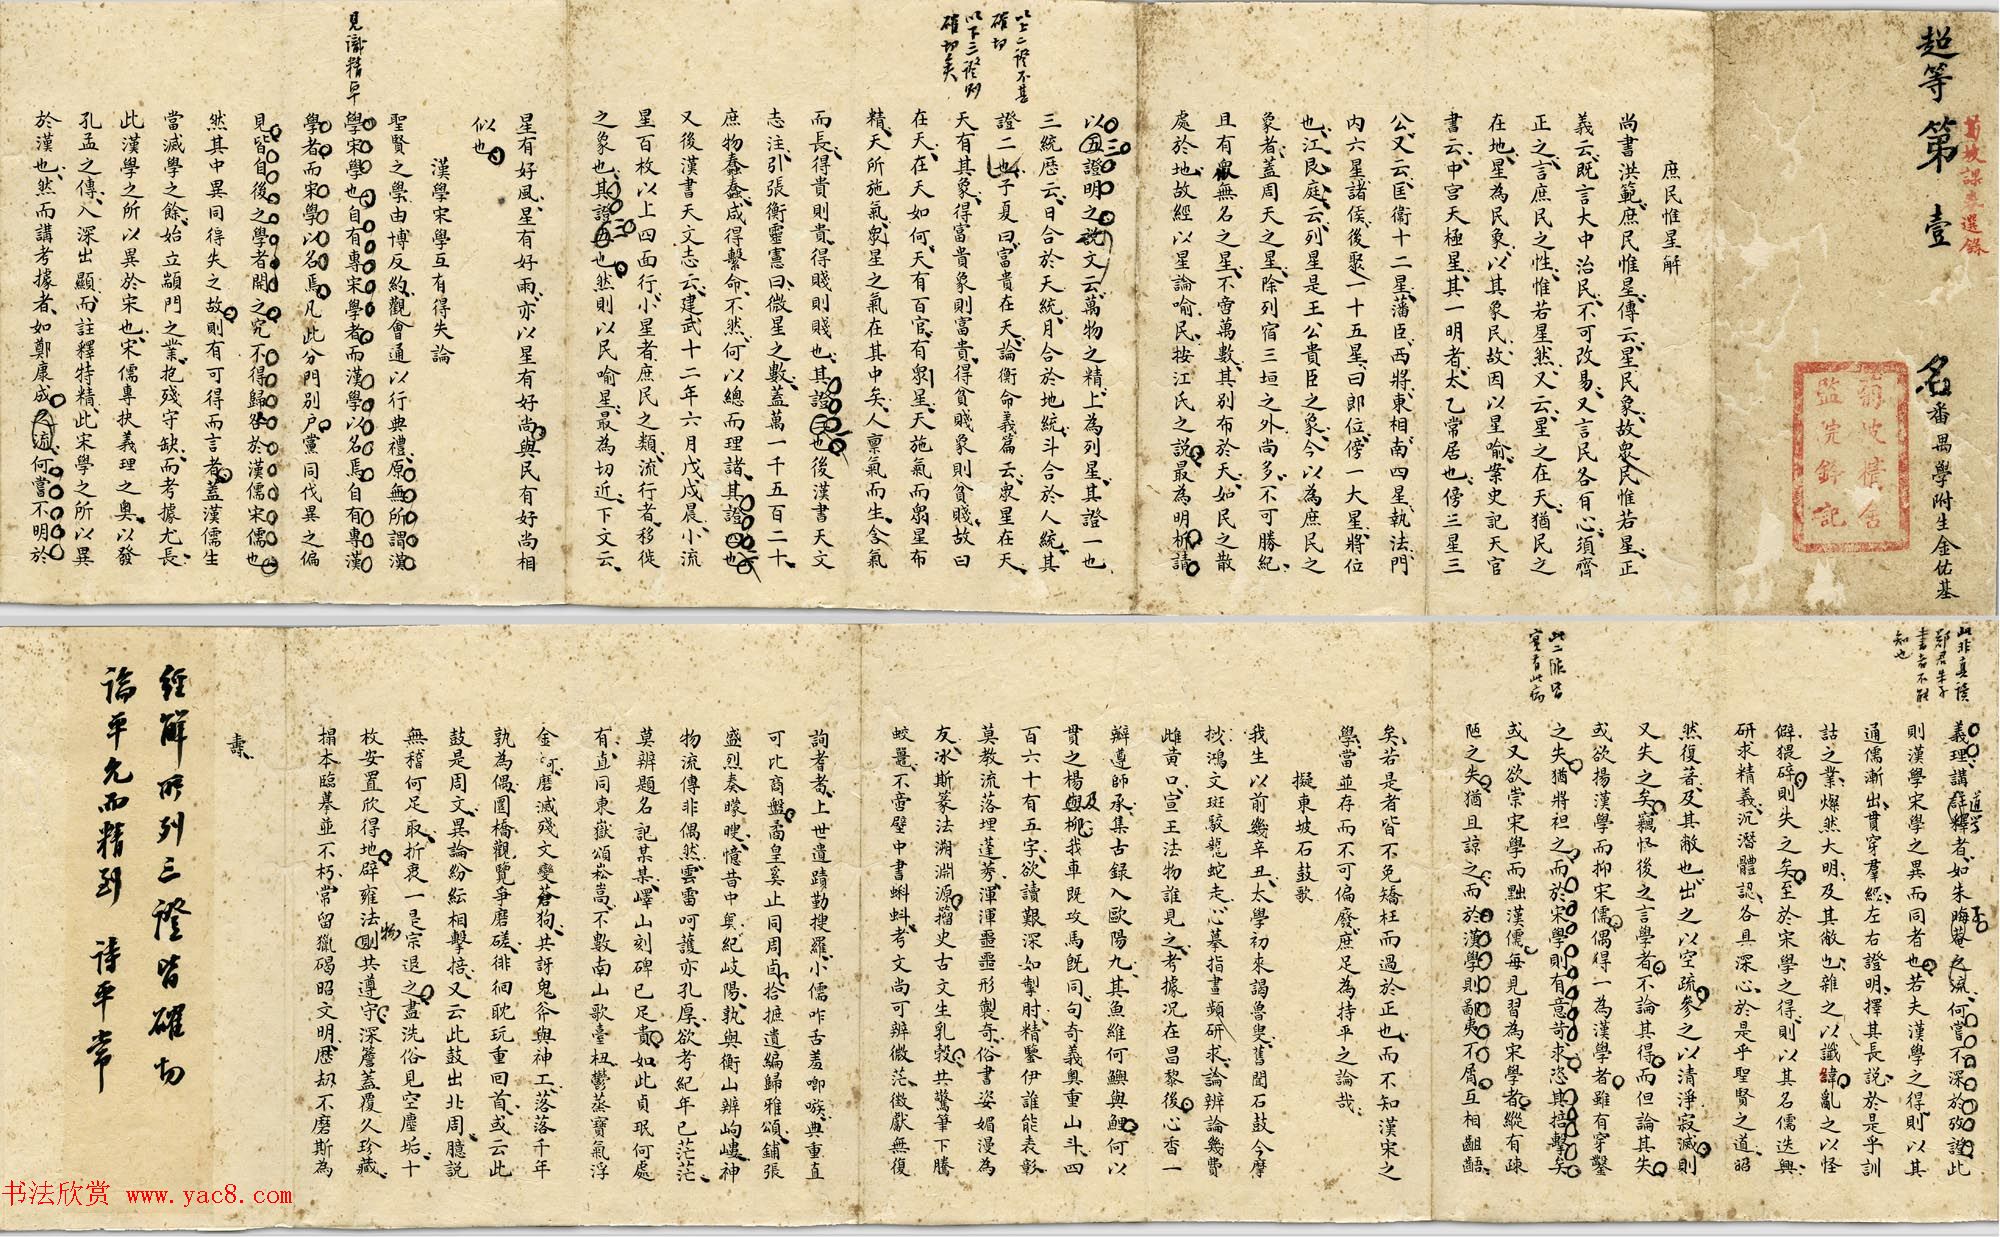 超等第壹名
番禺學附生金佑基
菊坡課卷選錄
菊坡精舍
監院鈐記
庶民惟星解
尚書洪範庶民惟星傳云星民象故衆民惟若星正
義云既言大中治民不可改易又言民各有心須齊
正之言庶民之性惟若星然又云星之在天猶民之
在地星為民象以其象民故因以星喻案史記天官
書云中宮天極星其一明者太乙常居也傍三星三
公又云匡衞十二星藩臣西將東相南四星執法門
内六星諸侯後聚一十五星曰郎位傍一大星將位
也江艮庭云列星是王公貴臣之象今以為庶民之
象者蓋周天之星除列宿三垣之外尚多不可勝紀
且有衆無名之星不啻萬數其别布於天如民之散
處於地故經以星諭民按江氏之説最為明析請
以五證明之説文云萬物之精上為列星其證一也
三統歷云日合於天統月合於地統斗合於人統其
證二也子夏曰富貴在天論衡命義篇云衆星在天
天有其象得富貴象則富貴得貧賤象則貧賤故曰
在天在天如何天有百官有衆星天施氣而衆星布
精天所施氣衆星之氣在其中矣人禀氣而生含氣
而長得貴則貴得賤則賤也其證三也後漢書天文
志注引張衡靈憲曰微星之數蓋萬一千五百二十
庶物蠢蠢咸得繫命不然何以總而理諸其證四也
又後漢書天文志云建武十二年六月戊戌晨小流
星百枚以上四面行小星者庶民之類流行者移徙
之象也其證五也然則以民喻星最為切近下文云
星有好風星有好雨亦以星有好尚與民有好尚相
似也
以上二證不甚
確切
以下三證則
確切矣
漢學宋學互有得失論
聖賢之學由博反約觀會通以行典禮原無所謂漢
學宋學也自有專宋學者而漢學以名焉自有專漢
學者而宋學以名焉凡此分門别户黨同伐異之偏
見皆自後之學者開之究不得歸咎於漢儒宋儒也
然其中異同得失之故則有可得而言者蓋漢儒生
當滅學之餘始立顓門之業抱殘守缺而考據尤長
此漢學之所以異於宋也宋儒專抉義理之奥以發
孔孟之傳入深出顯而註釋特精此宋學之所以異
於漢也然而講考據者如鄭康成之流何嘗不明於
見識精卓
義理講註釋者如朱晦菴之流何嘗不深於攷證此
則漢學宋學之異而同者也若夫漢學之得則以其
通儒漸出貫穿羣經左右證明擇其長説於是乎訓
詁之業燦然大明及其敝也雜之以讖緯亂之以怪
僻猥碎則失之矣至於宋學之得則以其名儒迭興
研求精義沉潛體認各具深心於是乎聖賢之道昭
然復著及其敝也出之以空疏參之以清淨寂滅則
又失之矣竊怪後之言學者不論其得而但論其失
或欲揚漢學而抑宋儒偶得一為漢學者雖有穿鑿
之失猶將袒之而於宋學則有意苛求恣其掊擊矣
或又欲崇宋學而黜漢儒每見習為宋學者縱有疎
陋之失猶且諒之而於漢學則鄙夷不屑互相齟齬
矣若是者皆不免矯枉而過於正也而不知漢宋之
學當並存而不可偏廢庶足為持平之論哉
此非真讀
鄭君朱子
書者不能
知也
道學
子
此二派皆
實有此病
擬東坡石鼓歌
我生以前幾辛丑太學初來謁魯叟舊聞石鼓今摩
抄鴻文斑駮龍蛇走心摹指畫頻研求論辨論幾費
雌黄口宣王法物誰見之考據況在昌黎後心香一
瓣遵師承集古録入歐陽九其魚維何鱮與鯉何以
貫之楊與柳我車既攻馬既同句奇義奥重山斗四
百六十有五字欲讀艱深如掣肘精鑒伊誰能表彰
莫教流落埋蓬莠渾渾噩噩形製奇俗書姿媚漫為
友冰斯篆法溯淵源籀史古文生乳㝅共驚筆下騰
蛟鼉不啻壁中書蝌蚪考文尚可辨微茫徴獻無復
詢者耇上世遺蹟勤搜羅小儒咋舌羞唧喉典重直
可比商盤矞皇奚止同周卣拾摭遺編歸雅頌鋪張
盛烈奏矇瞍憶昔中興紀岐陽孰與衡山辨岣嶁神
物流傳非偶然雲雷呵護亦孔厚欲考紀年已茫茫
莫辨題名記某某嶧山刻碑已足貴如此貞珉何處
有直同東嶽頌崧嵩不數南山歌臺杻鬱蒸寶氣浮
金石磨滅殘文變蒼狗共訝鬼斧與神工落落千年
孰為偶圜橋觀覽爭磨磋徘徊耽玩重回首或云此
鼓是周文異論紛紜相擊掊又云此鼓出北周臆説
無稽何足取折衷一是宗退之盡洗俗見空塵垢十
枚安置欣得地辟雍法則共遵守深簷蓋覆久珍藏
搨本臨摹並不朽常留獵碣昭文明歷劫不磨斯為
壽
及
物
經解所列三證皆確切
論平允而精到 詩平常
书法欣赏 www.yac8.com